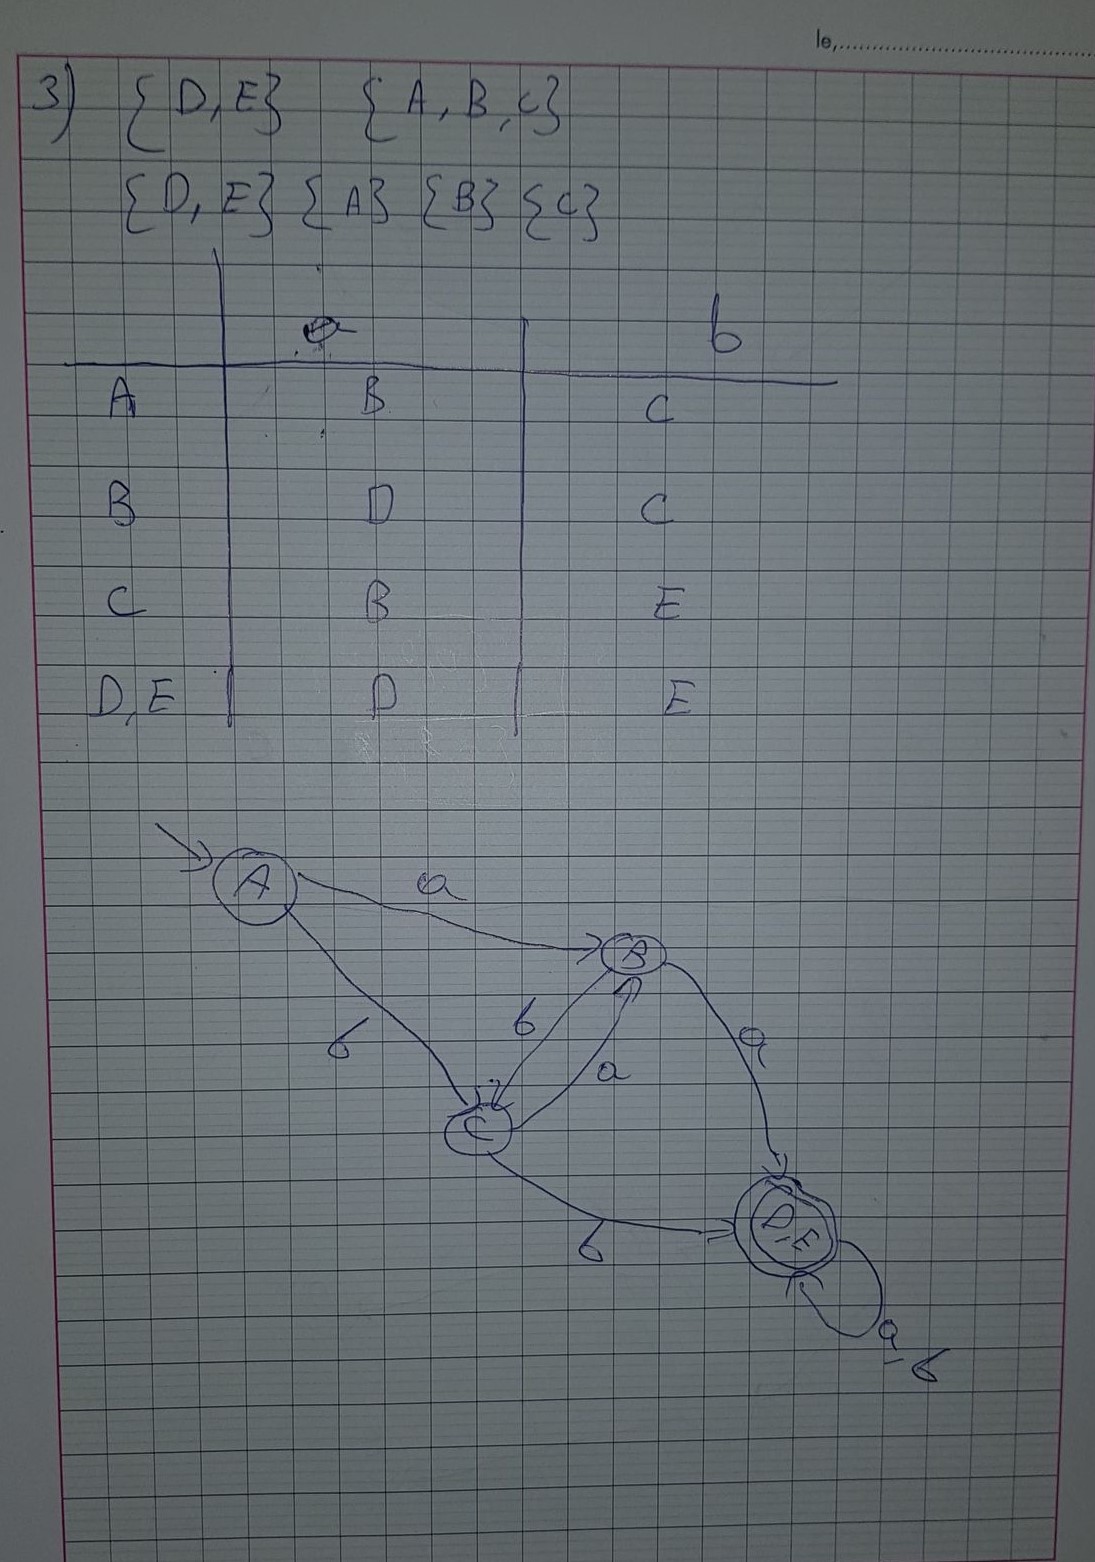 le,
3) { D, E} { A, B, C}
{D, E} { A} {B} {C}
a b
A B C
B D C
C B E
D, E D E
A
a
B
b
b
a
a
C
D, E
b
a
b